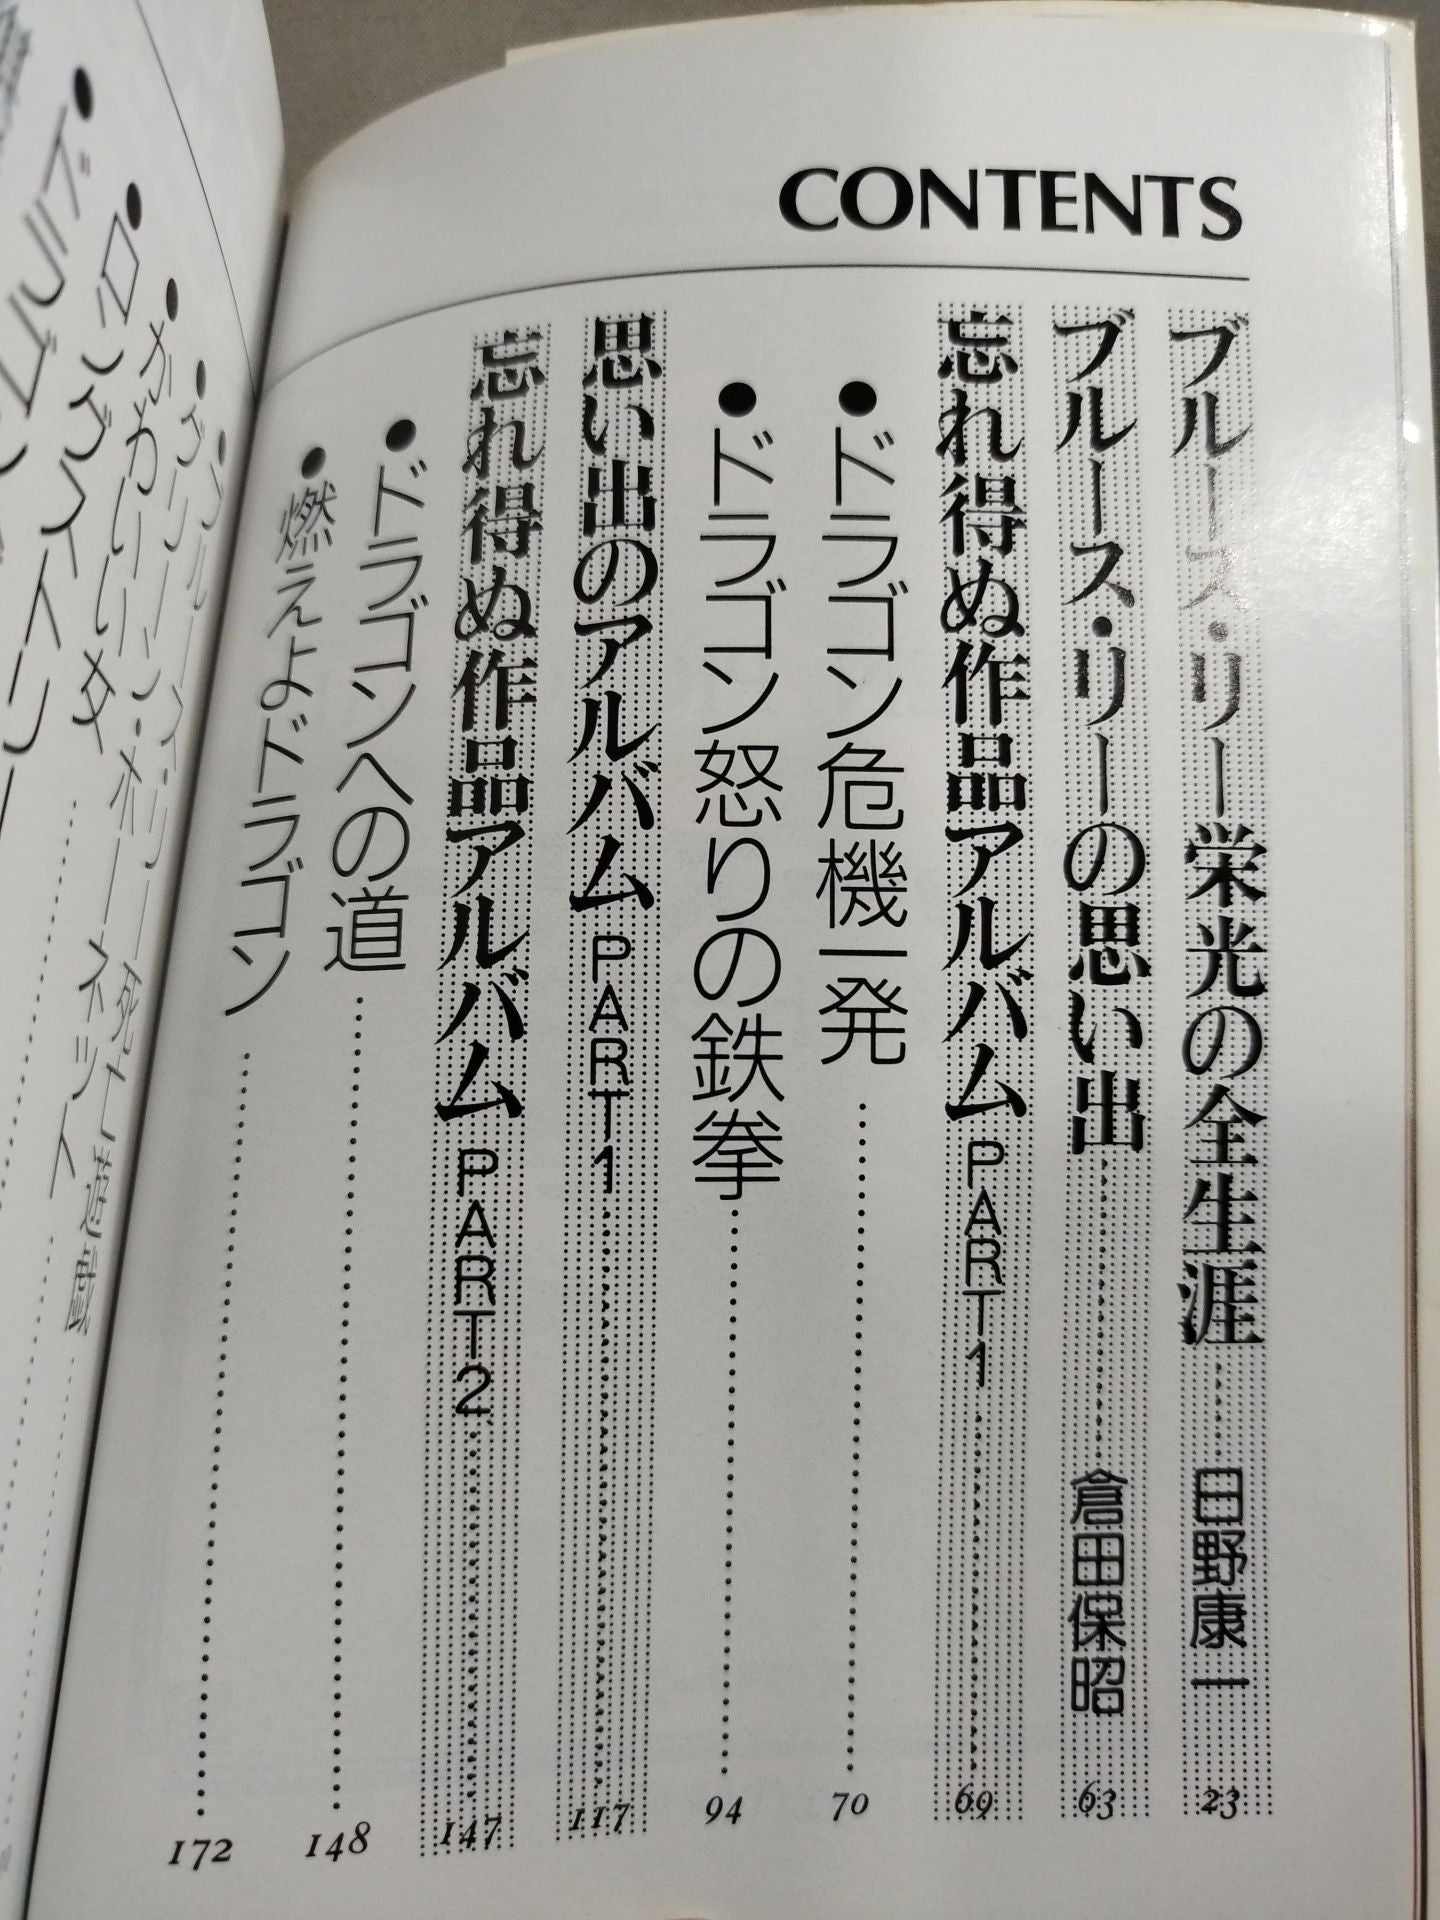 CONTENTS
ブルース・リー栄光の全生涯……日野康一 23
ブルース・リーの思い出……………倉田保昭 63
忘れ得ぬ作品アルバム PART1……………69
●ドラゴン危機一発……………70
●ドラゴン怒りの鉄拳……………94
思い出のアルバム PART1……………117
忘れ得ぬ作品アルバム PART2……………147
●ドラゴンへの道……………148
●燃えよドラゴン……………172
●ブルース・リー死亡遊戯
●グリーン・ホーネット
●かわいい女
●ロングストリート